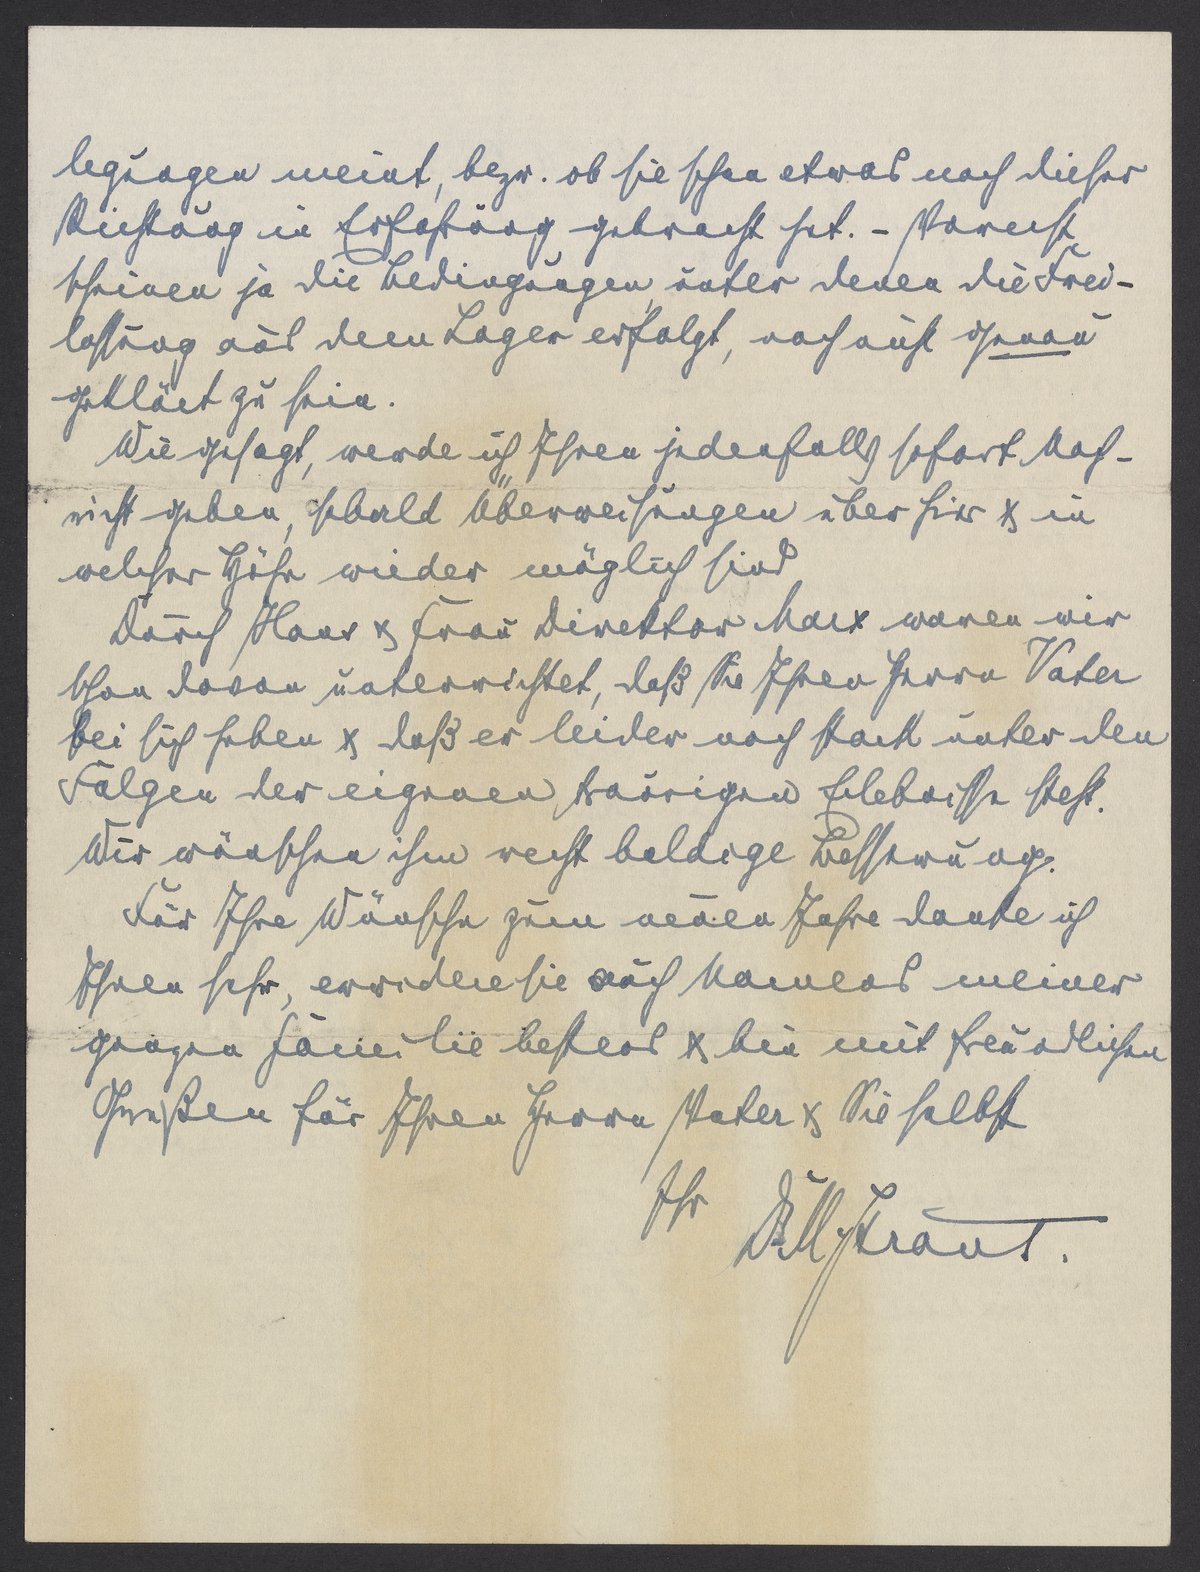 legungen meint, bezw. ob sie schon etwas nach dieser
Richtung in Erfahrung gebracht hat. - Vorerst
scheinen ja die Bedingungen, unter denen die Frei-
lassung aus dem Lager erfolgt, noch nicht genau
geklärt zu sein.
Wie gesagt, werde ich Ihnen jedenfalls sofort Nach-
richt geben, sobald Überweisungen über hier & in
welcher Höhe wieder möglich sind
Durch Herrn & Frau Direktor Marx waren wir
schon davon unterrichtet, daß Sie Ihren Herrn Vater
bei sich haben & daß er leider noch stark unter den
Folgen der eigenen traurigen Erlebnisse steht.
Wir wünschen ihm recht baldige Besserung.
Für Ihre Wünsche zum neuen Jahre danke ich
Ihnen sehr, erwidere sie auch Namens meiner
ganzen Familie bestens & bin mit freundlichen
Grüßen für Ihren Herrn Vater & Sie selbst
Ihr